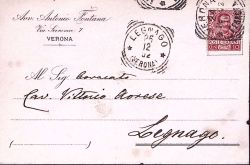 Avv. Antonio Fontana
Via Leoncino 7
VERONA
LEGNAGO
25
12
02
(VERONA)
VERONA
A M Sig. Avvocato
Cav. Vittorio Avrese
Legnago.